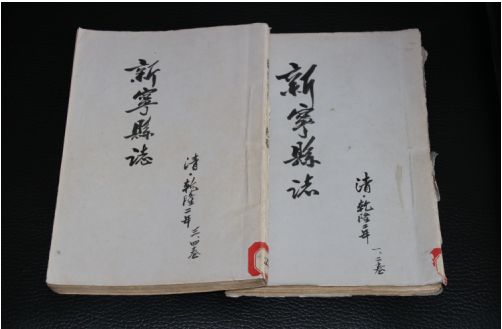 新寧縣誌
清·乾隆二年
三、四卷
新寧縣誌
清·乾隆二年
一、二卷